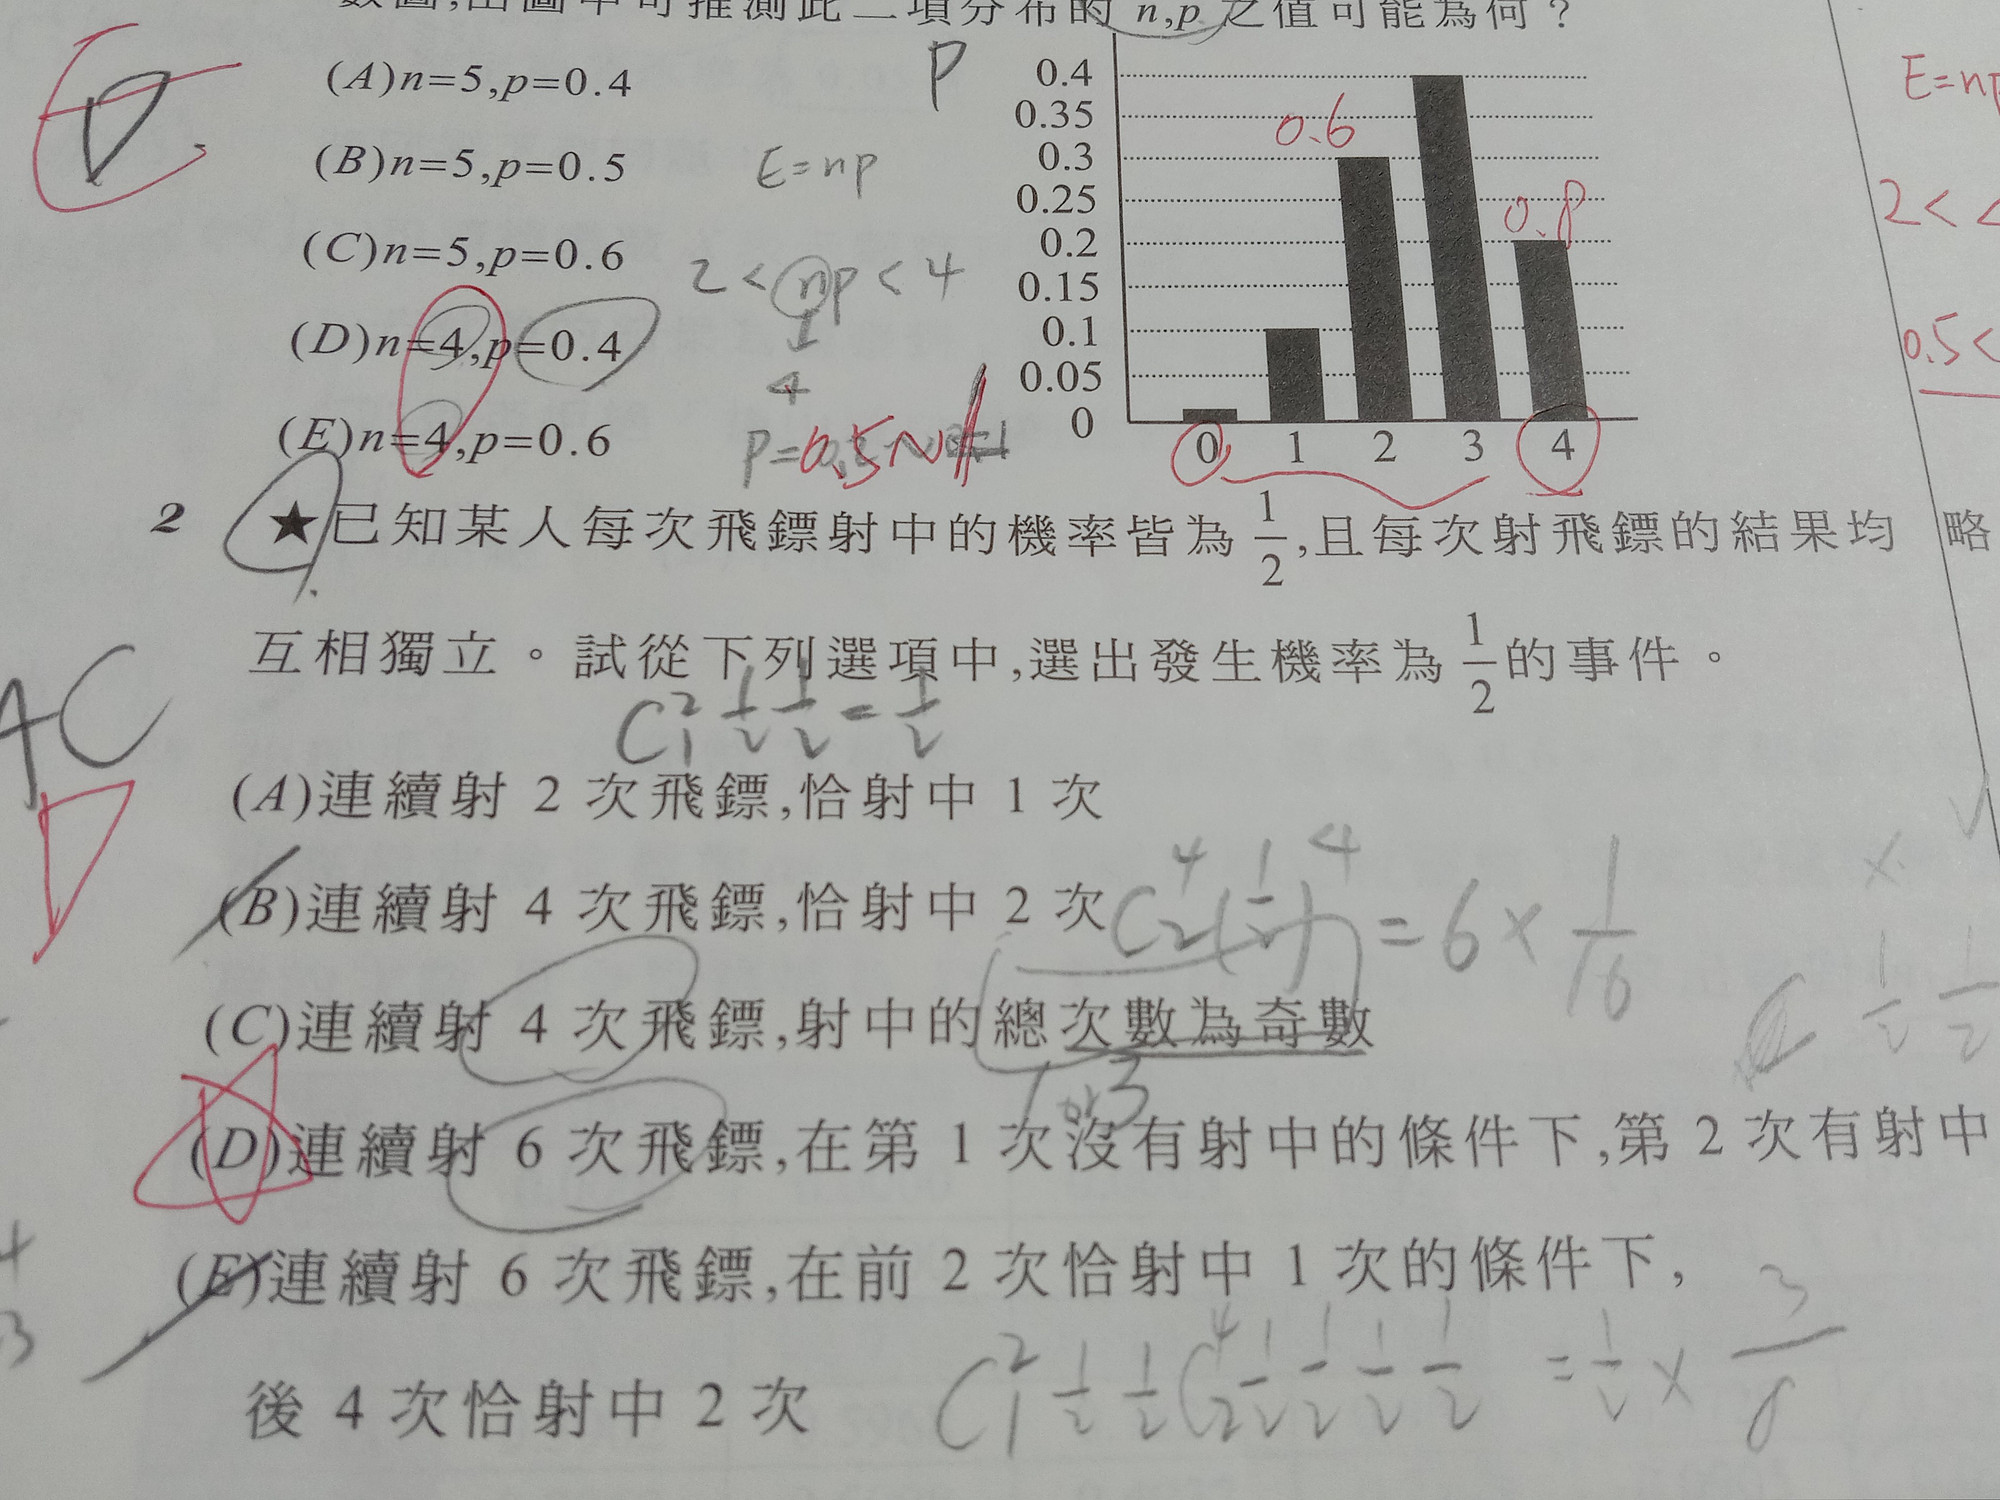 數圖,由圖中可推測此二項分布的 n,p 之值可能為何?
(A)n=5,p=0.4
(B)n=5,p=0.5
(C)n=5,p=0.6
(D)n=4,p=0.4
(E)n=4,p=0.6
E=np
2<np<4
4
P
0.4
0.35
0.3
0.25
0.2
0.15
0.1
0.05
0
0 1 2 3 4
0.6
0.8
E=np
2<
0.5<
2 ★已知某人每次飛鏢射中的機率皆為 1/2,且每次射飛鏢的結果均 略
互相獨立。試從下列選項中,選出發生機率為 1/2 的事件。
AC
D
C²₁ 1/2 1/2 = 1/2
(A)連續射 2 次飛鏢,恰射中 1 次
(B)連續射 4 次飛鏢,恰射中 2 次 C⁴₂(1/2)⁴ = 6 × 1/16
(C)連續射 4 次飛鏢,射中的總次數為奇數
1 or 3
(D)連續射 6 次飛鏢,在第 1 次沒有射中的條件下,第 2 次有射中
(E)連續射 6 次飛鏢,在前 2 次恰射中 1 次的條件下,
後 4 次恰射中 2 次 C²₁ 1/2 1/2 C⁴₂ 1/2 1/2 1/2 1/2 = 1/2 × 3/8